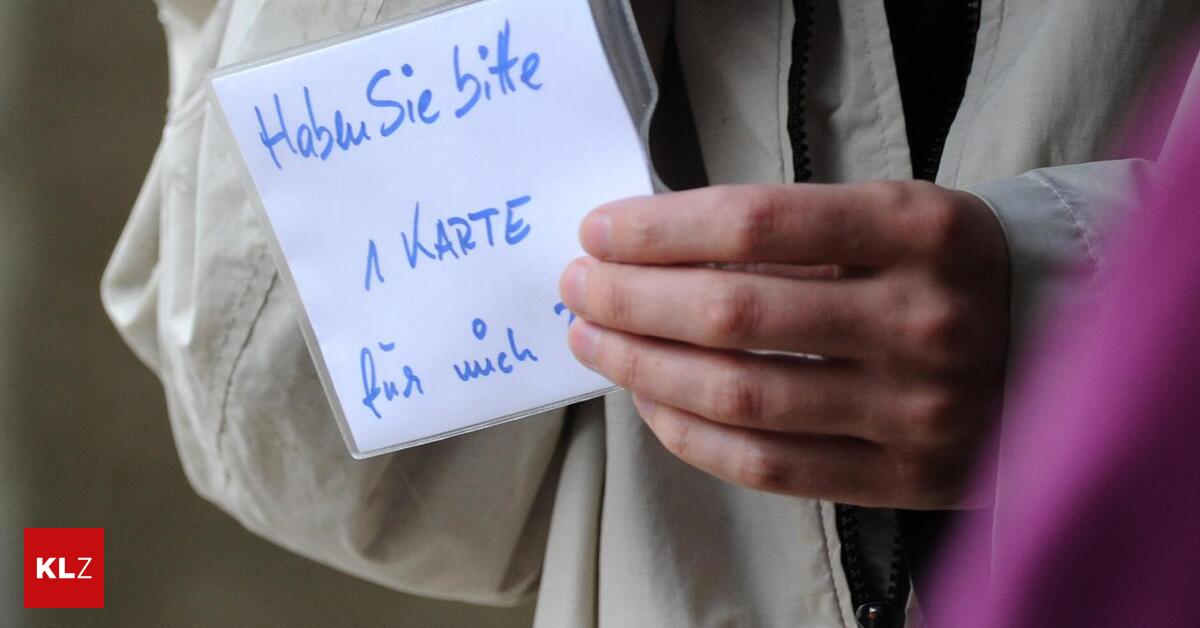 Haben Sie bitte
1 KARTE
für mich ?
KLZ